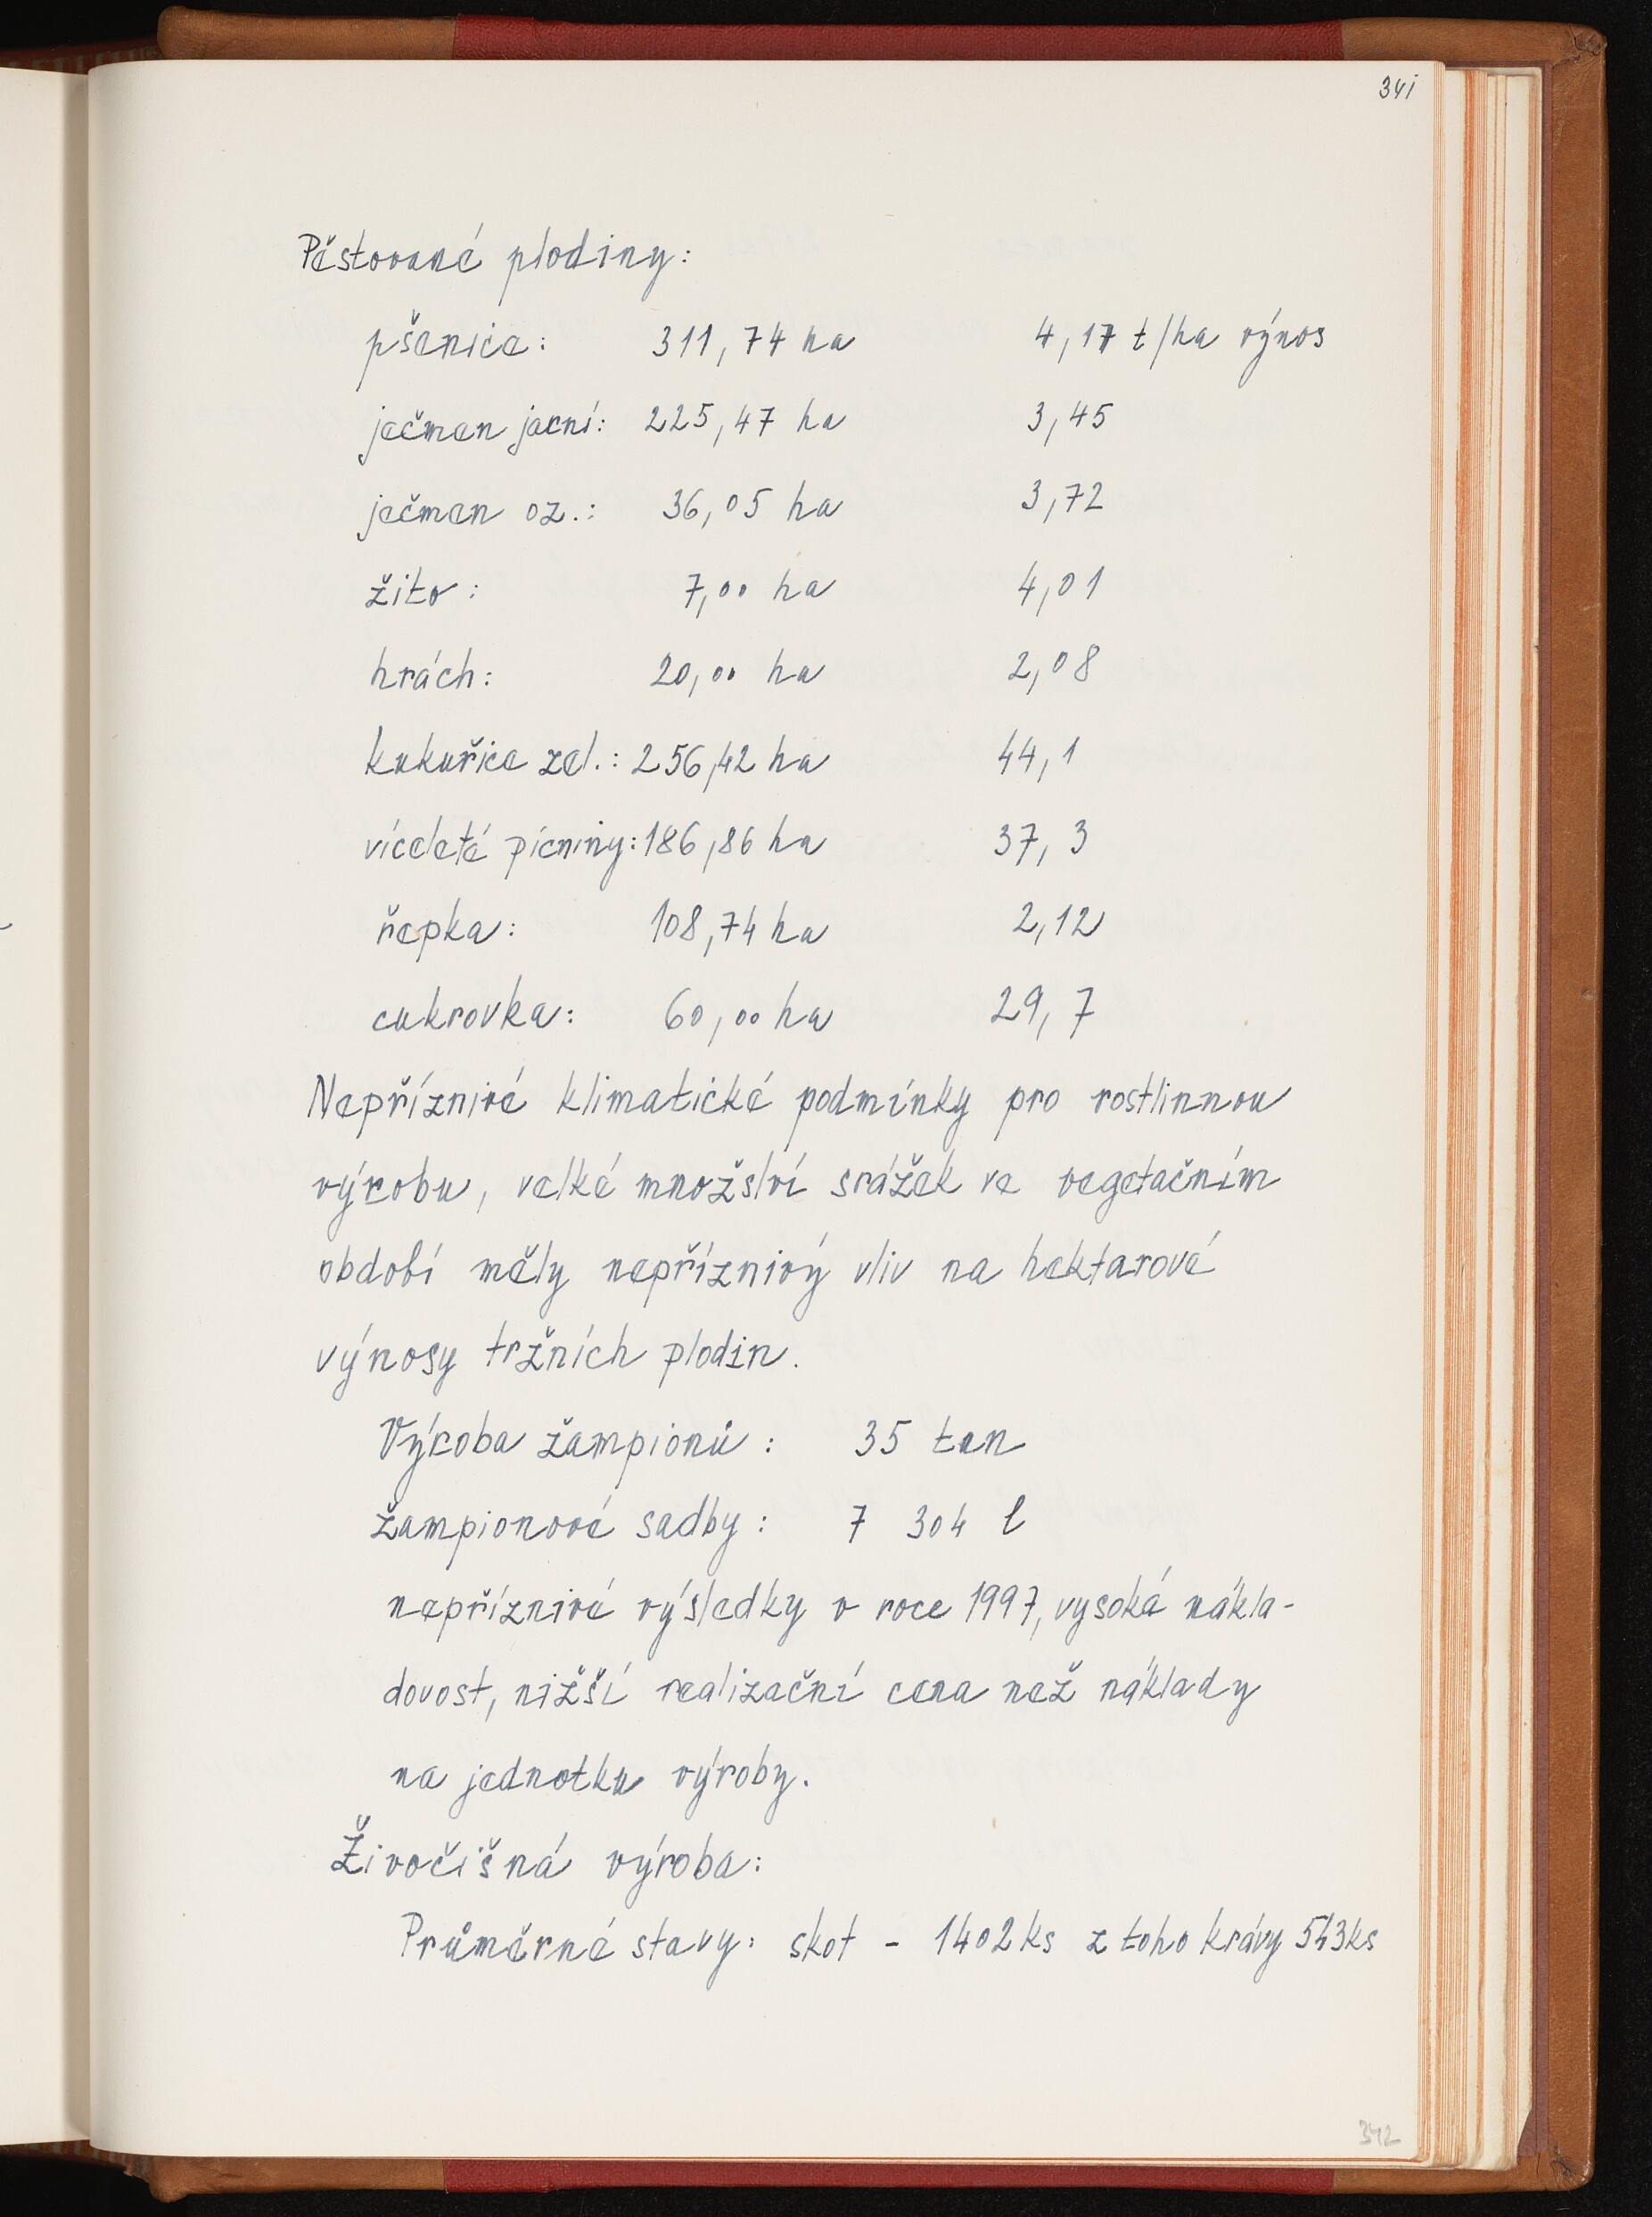 341
Pěstované plodiny:
pšenice: 311,74 ha 4,17 t/ha výnos
ječmen jarní: 225,47 ha 3,45
ječmen oz.: 36,05 ha 3,72
žito: 7,00 ha 4,01
hrách: 20,00 ha 2,08
kukuřice zel.: 256,42 ha 44,1
víceleté pícniny: 186,86 ha 37,3
řepka: 108,74 ha 2,12
cukrovka: 60,00 ha 29,7
Nepříznivé klimatické podmínky pro rostlinnou
výrobu, velké množství srážek ve vegetačním
období měly nepříznivý vliv na hektarové
výnosy tržních plodin.
Výroba žampionů: 35 tun
žampionové sadby: 7 304 l
nepříznivé výsledky v roce 1997, vysoká nákla-
dovost, nižší realizační cena než náklady
na jednotku výroby.
Živočišná výroba:
Průměrné stavy: skot - 1402 ks z toho krávy 543 ks
342